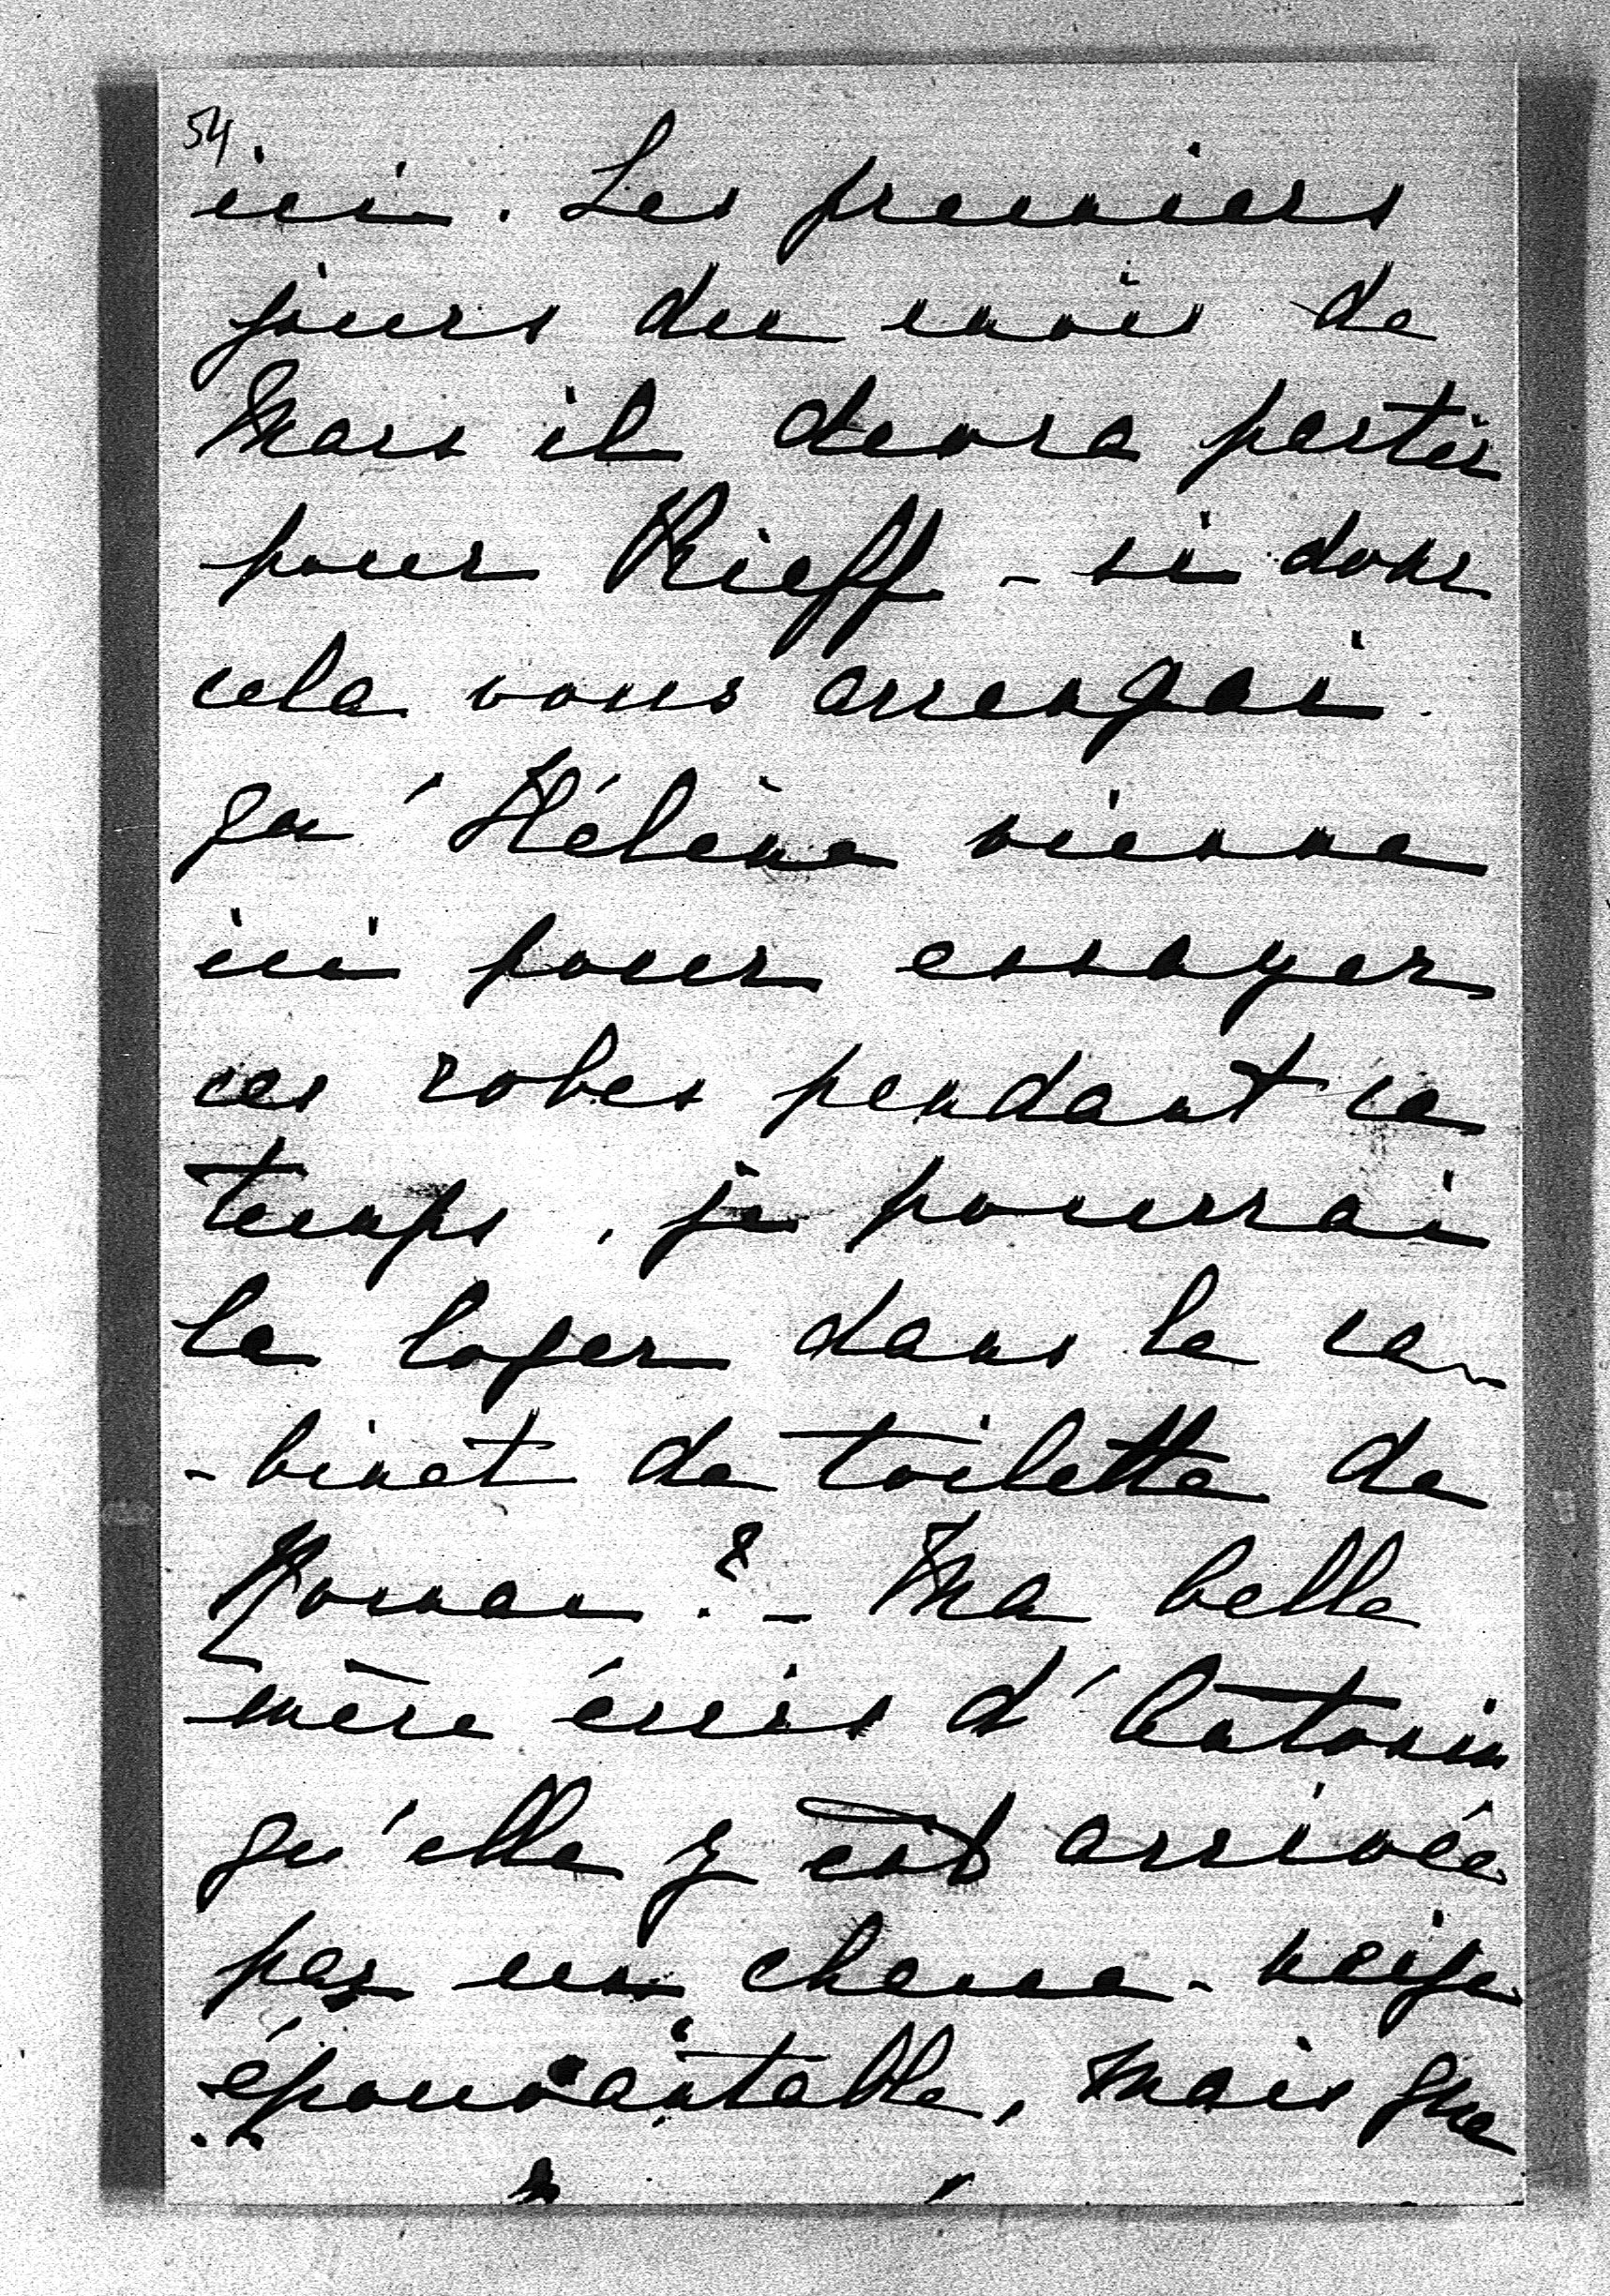 54
ici. Les premiers
jours du mois de
Mars il devra partir
pour Kieff - si donc
cela vous arrengai
qu'Hélène vienne
ici pour essayer
ces robes pendant ce
temps, je pourrai
la loger dans le ca
-binet de toilette de
Roman? - Ma belle
mère écris d'Antonin
qu'elle y est arrivée
par un chasse-neige
épouvantable, mais que